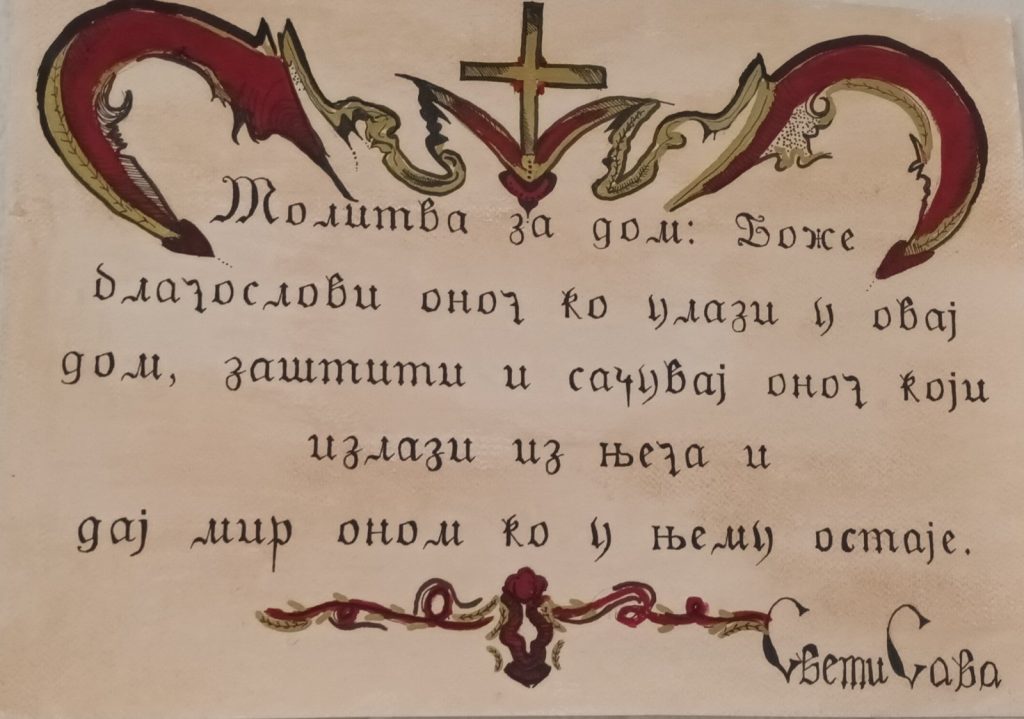 Молитва за дом: Боже
благослови оног ко улази у овај
дом, заштити и сачувај оног који
излази из њега и
дај мир оном ко у њему остаје.
Свети Сава